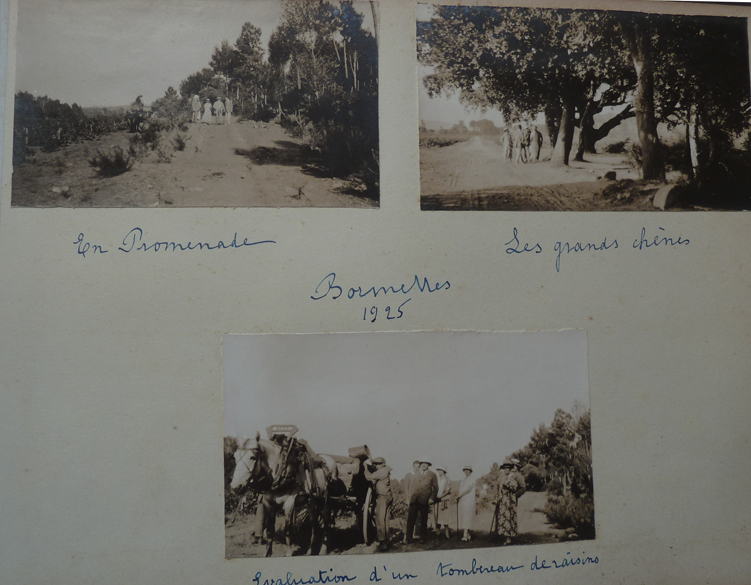 En Promenade
Les grands chênes
Bormettes
1925
Evaluation d'un tombereau de raisins